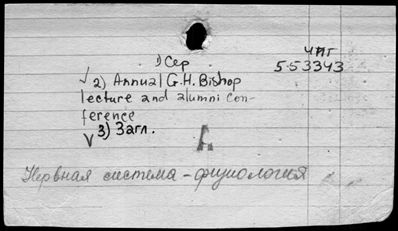 1) Сер
ЧПГ
5-53343
√ 2) Annual G.H. Bishop
lecture and alumni con-
ference
√ 3) Загл.
А
Нервная система - физиология